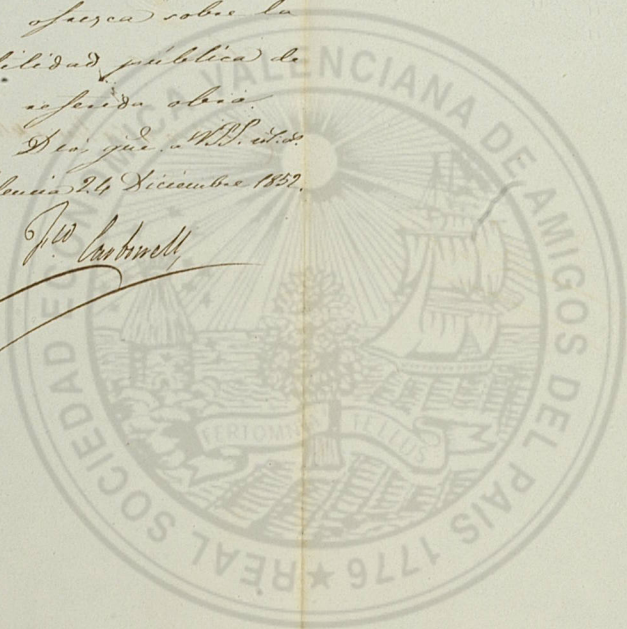 ofresca sobre la
ilidad pública de
referida obra.
Dios gue. a VSS. ms. as.
lencia 24 Diciembre 1852.
Fco Carbonell
REAL SOCIEDAD ECONOMICA VALENCIANA DE AMIGOS DEL PAIS 1776
FERT OMNIA TELLUS